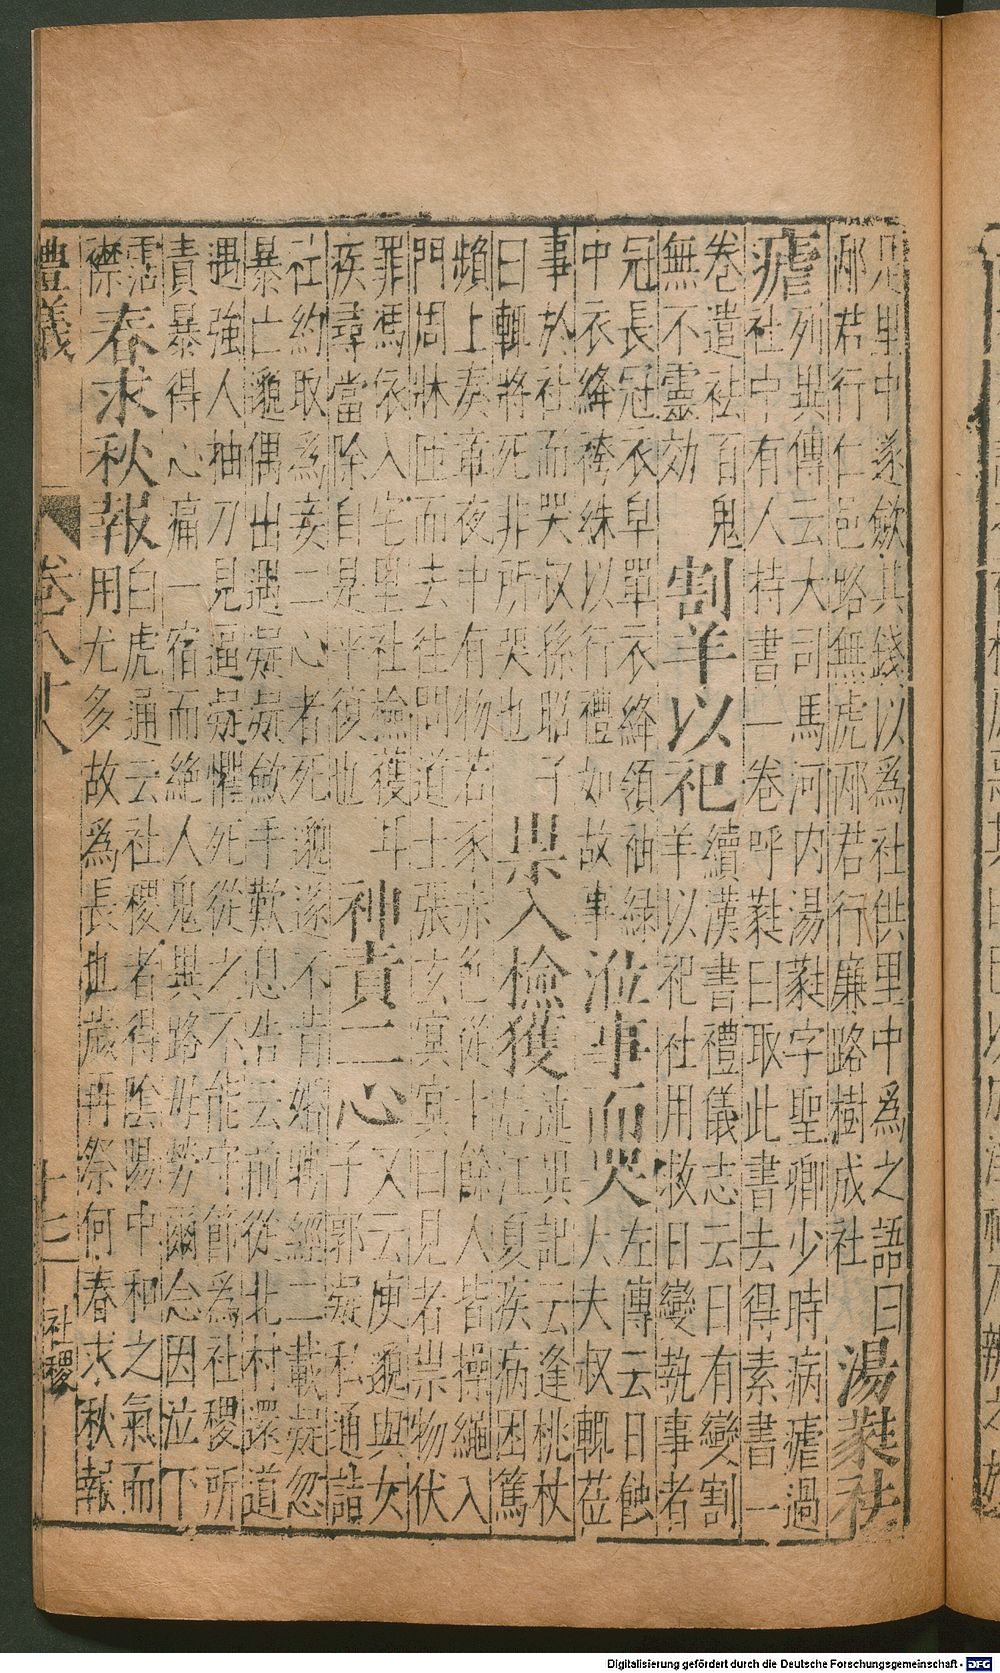 見里中遂歛其錢以爲社供里中爲之語曰
邴君行仁邑路無虎邴君行廉路樹成社 湯蕤祛
瘧
列異傳云大司馬河内湯蕤字聖卿少時病瘧過
社中有人持書一卷呼蕤曰取此書去得素書一
卷遣祛百鬼
無不靈効
割羊以祀
續漢書禮儀志云日有變割
羊以祀社用救日變執事者
冠長冠衣皁單衣絳領袖緣
中衣絳袴絑以行禮如故事
涖事而哭
左傳云日蝕
大夫叔輒莅
事於社而哭叔孫昭子
曰輒將死非所哭也
祟入檢獲
述異記云逢桃杖
居江夏疾病困篤
頻上奏章夜中有物若豕赤色從十餘人皆操繩入
門周牀匝而去往問道士張玄冥冥曰見者祟物伏
罪馮依入宅里社檢獲耳
疾尋當除自是平復也
神責二心
又云庾邈與女
子郭凝私通詣
社約取爲妾二心者死邈遂不肯婚娉經二載凝忽
暴亡邈偶出遇凝凝歛手歎息告云前從北村還道
遇強人抽刀見逼凝懼死從之不能守節爲社稷所
責暴得心痛一宿而絶人鬼異路毋勞爾念因泣下
霑
襟
春求秋報
白虎通云社稷者得陰陽中和之氣而
用尤多故爲長也歲再祭何春求秋報
豊儀 卷八十八 十七 社稷
Digitalisierung gefördert durch die Deutsche Forschungsgemeinschaft - DFG